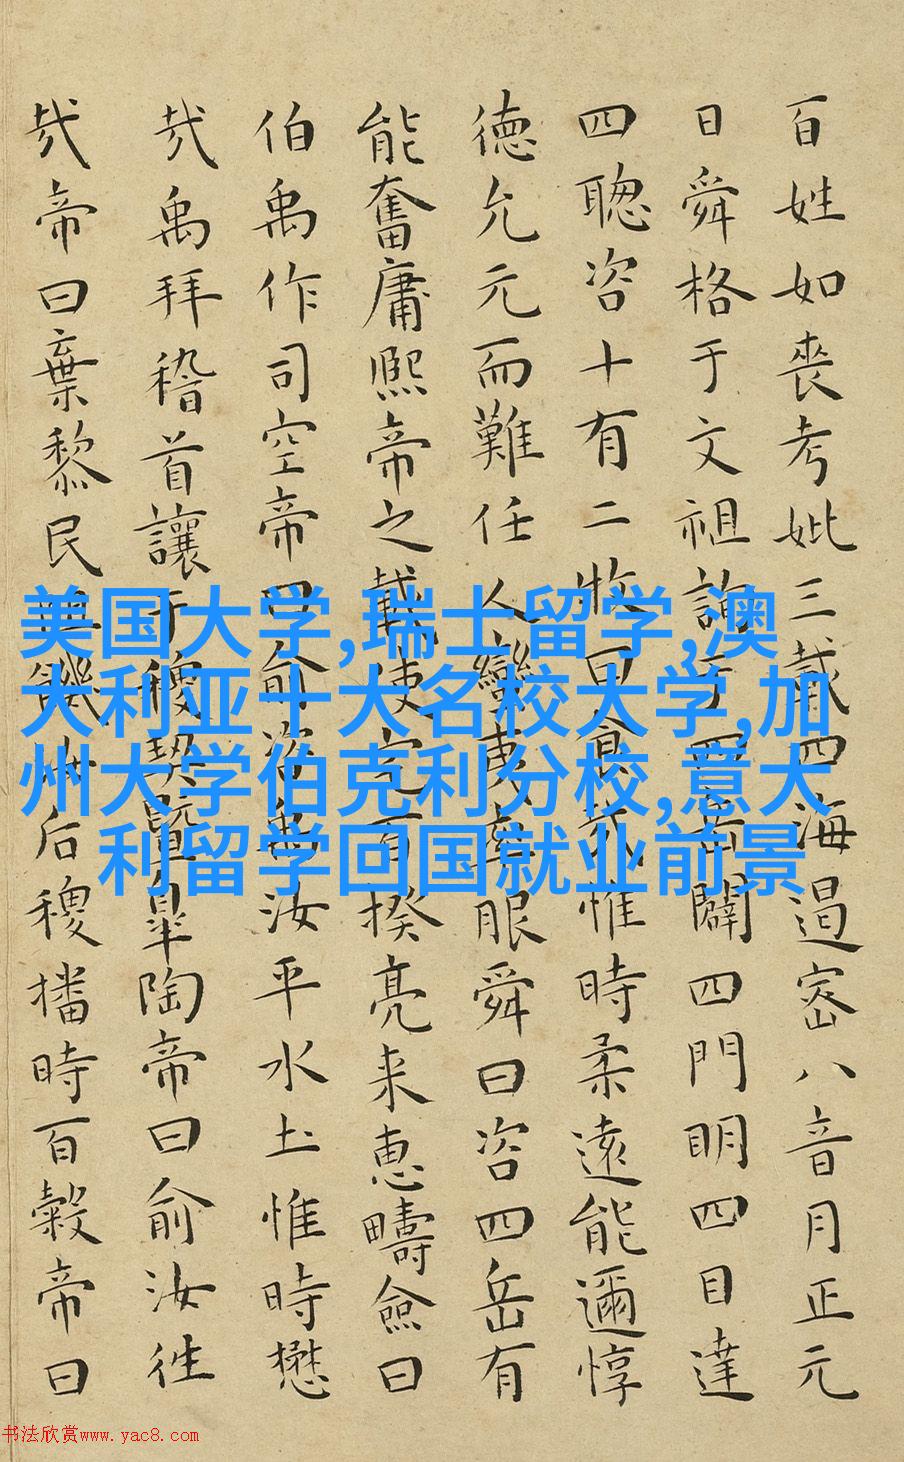 百姓如喪考妣三載四海遏密八音月正元
日舜格于文祖詢于四岳闢四門明四目達
四聰咨十有二牧曰食哉惟時柔遠能邇惇
德允元而難任人蠻夷率服舜曰咨四岳有
能奮庸熙帝之載使宅百揆亮采惠疇僉曰
伯禹作司空帝曰俞咨禹汝平水土惟時懋
哉禹拜稽首讓于稷契暨皋陶帝曰俞汝往
哉帝曰棄黎民阻饑汝后稷播時百穀帝曰
美国大学,瑞士留学,澳
大利亚十大名校大学,加
州大学伯克利分校,意大
利留学回国就业前景
书法欣赏www.yac8.com